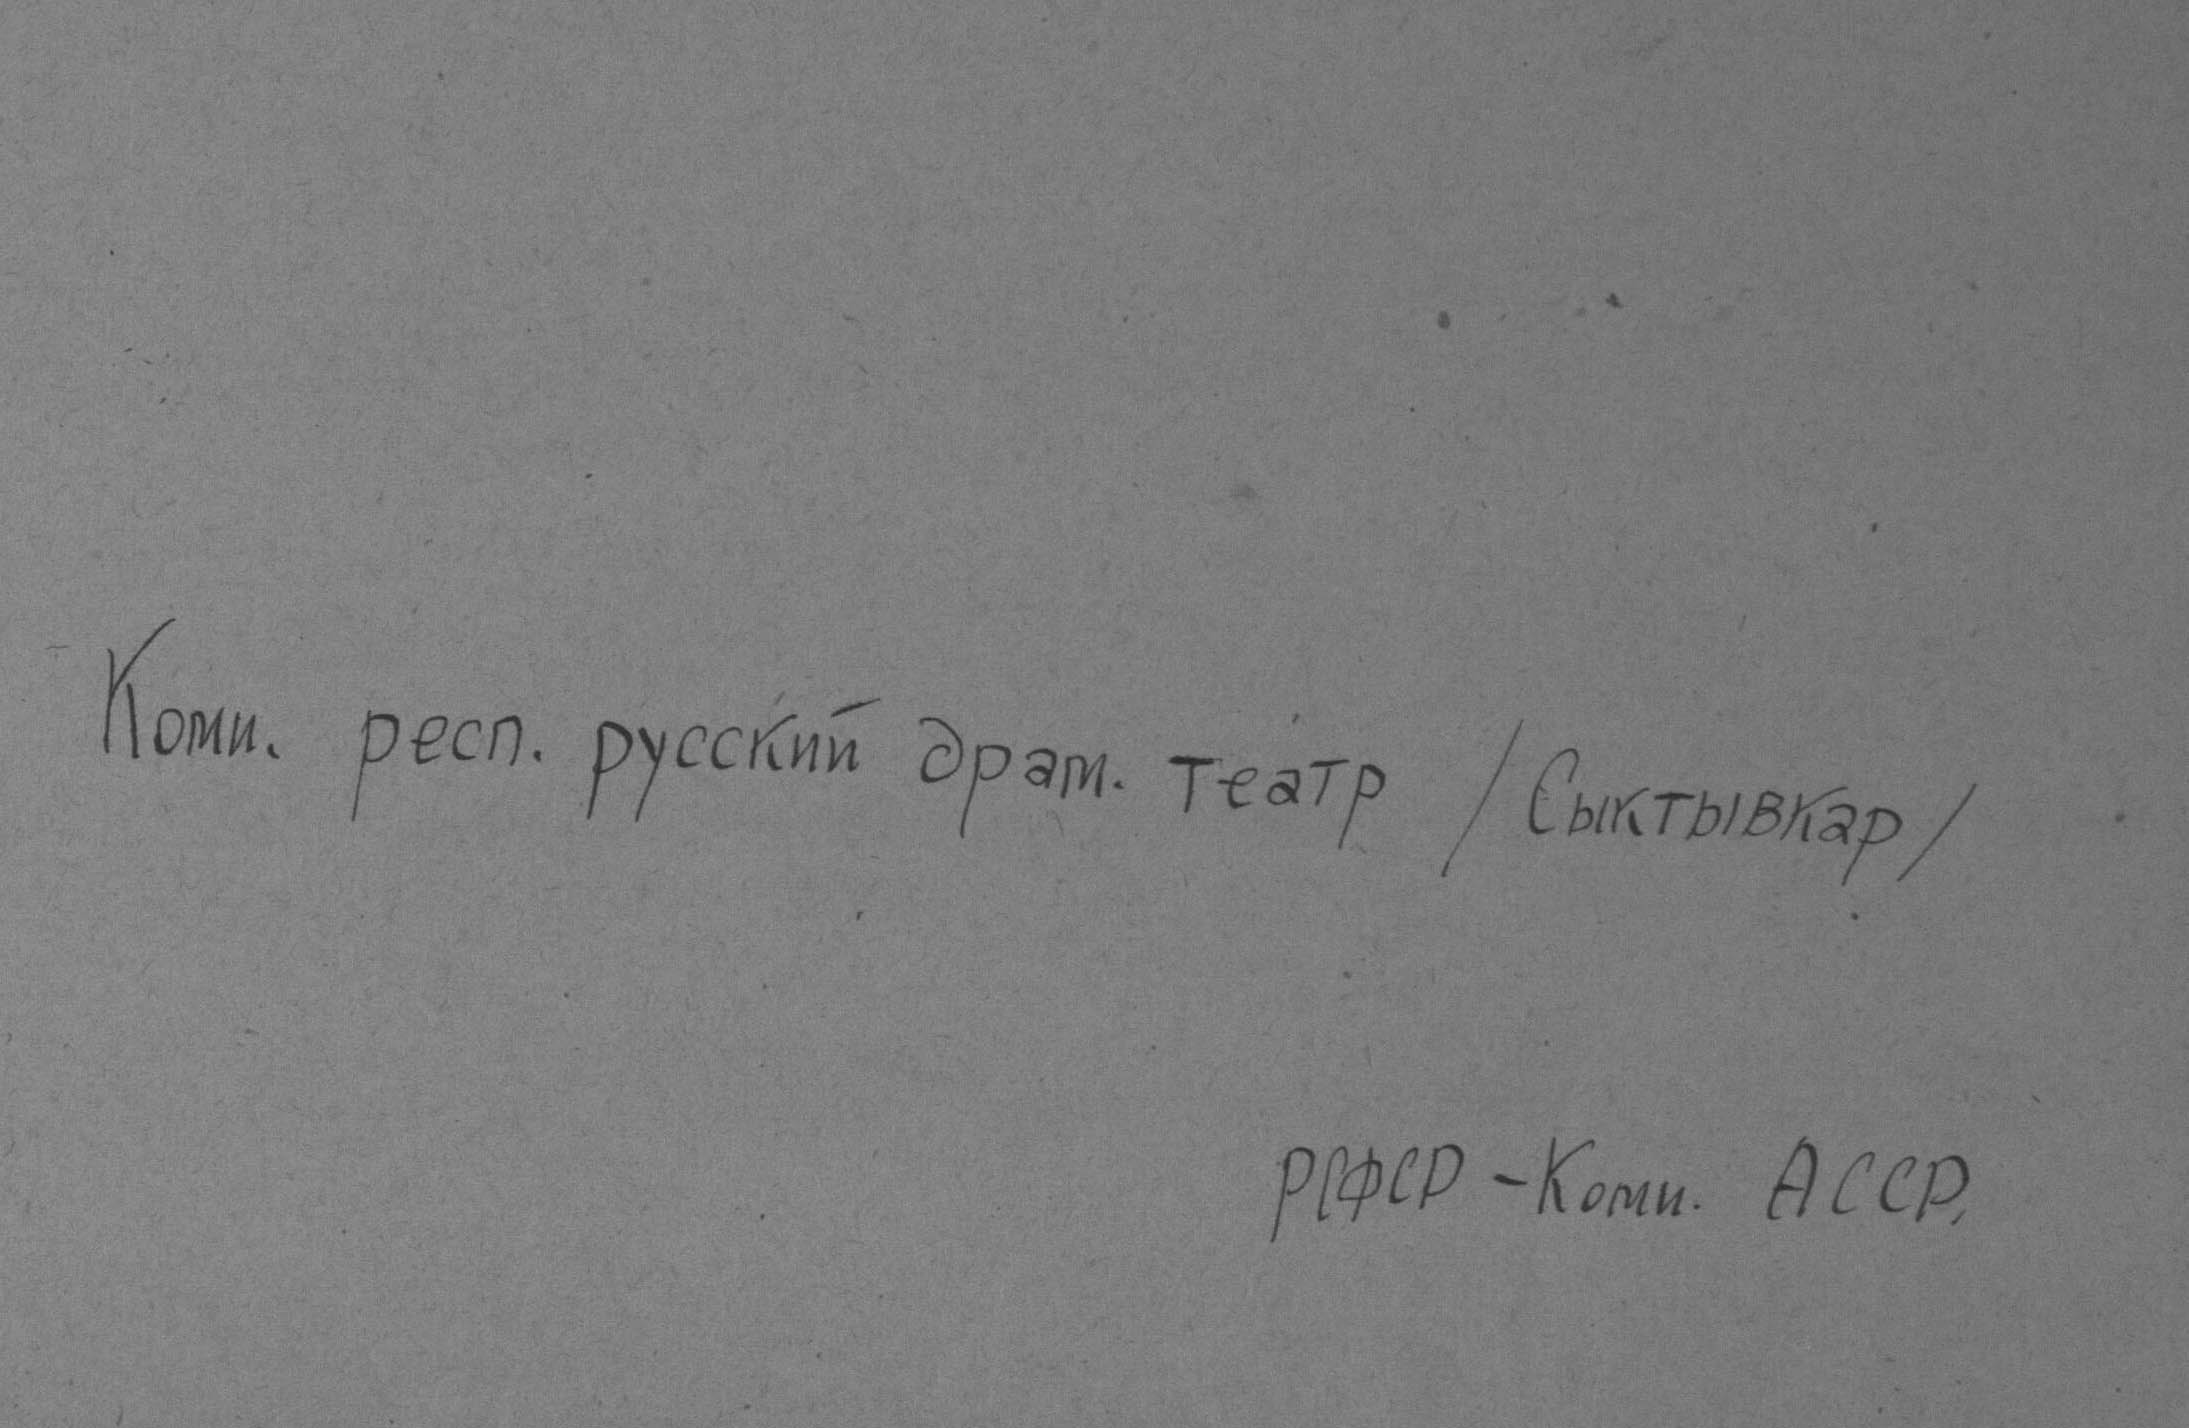 Коми. респ. русский драм. театр /Сыктывкар/
РСФСР - Коми. АССР.